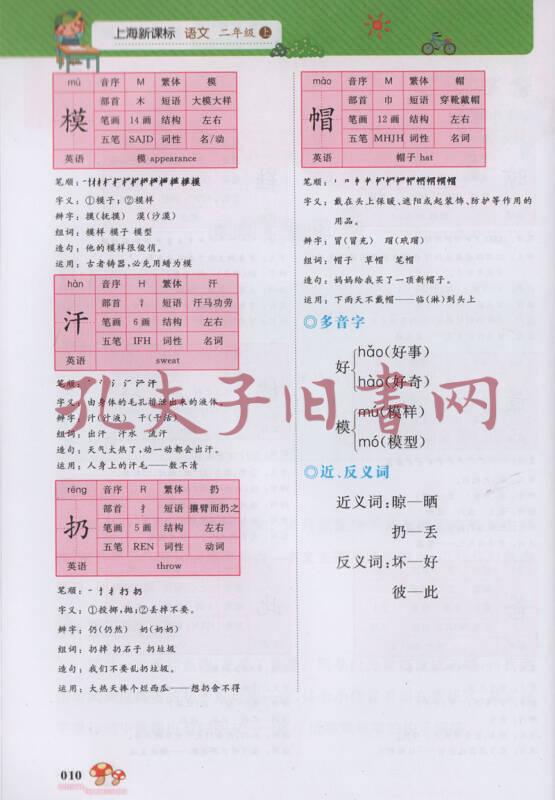 上海新课标 语文 二年级 上
mú 音序 M 繁体 模
模 部首 木 短语 大模大样
笔画 14画 结构 左右
五笔 SAJD 词性 名/动
英语 模 appearance
笔顺:
字义:①模子;②模样
辨字:摸(抚摸) 漠(沙漠)
组词:模样 模子 模型
造句:他的模样很俊俏。
运用:古老铸器,必先用蜡为模
hàn 音序 H 繁体 汗
汗 部首 氵 短语 汗马功劳
笔画 6画 结构 左右
五笔 IFH 词性 名词
英语 sweat
笔顺:
字义:由身体的毛孔排泄出来的液体。
辨字:汁(汁液) 干(干活)
组词:出汗 汗水 流汗
造句:天气太热了,动一动都会出汗。
运用:人身上的汗毛——数不清
rēng 音序 R 繁体 扔
扔 部首 扌 短语 攘臂而扔之
笔画 5画 结构 左右
五笔 REN 词性 动词
英语 throw
笔顺:
字义:①投掷,抛;②丢掉不要。
辨字:仍(仍然) 奶(奶奶)
组词:扔掉 扔石子 扔垃圾
造句:我们不要乱扔垃圾。
运用:大热天捧个烂西瓜——想扔舍不得
mào 音序 M 繁体 帽
帽 部首 巾 短语 穿靴戴帽
笔画 12画 结构 左右
五笔 MHJH 词性 名词
英语 帽子 hat
笔顺:
字义:戴在头上保暖、遮阳或起装饰、防护等作用的
用品。
辨字:冒(冒充) 瑁(玳瑁)
组词:帽子 草帽 笔帽
造句:妈妈给我买了一项新帽子。
运用:下雨天不戴帽——临(淋)到头上
多音字
好 hǎo(好事)
hào(好奇)
模 mú(模样)
mó(模型)
近、反义词
近义词:晾—晒
扔—丢
反义词:坏—好
彼—此
孔夫子旧书网
010